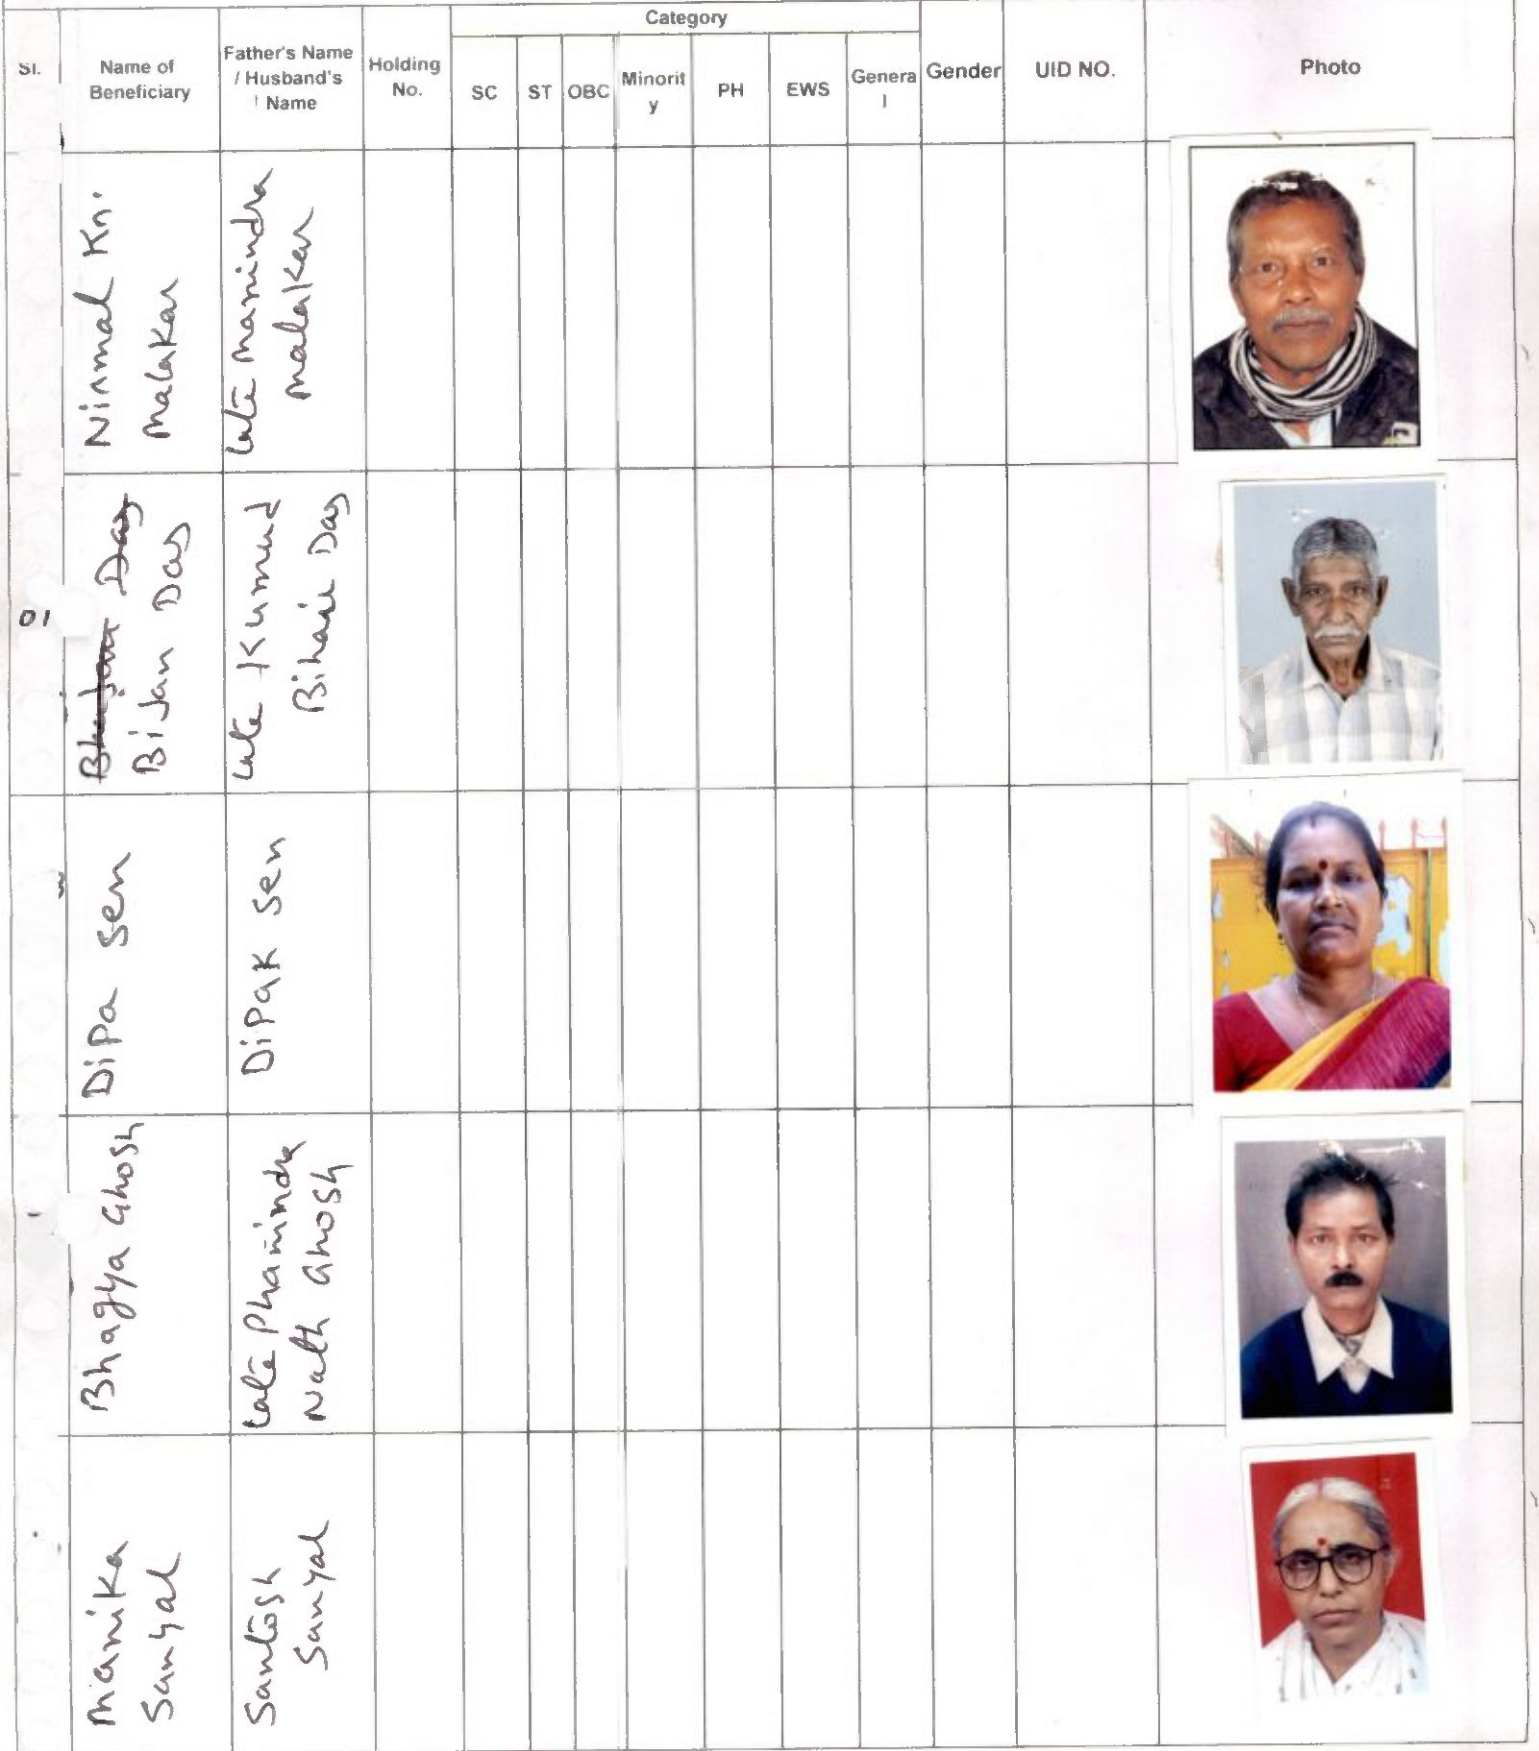 Category
Sl.
Name of
Beneficiary
Father's Name
/ Husband's
Name
Holding
No.
SC
ST
OBC
Minorit
y
PH
EWS
Genera
l
Gender
UID NO.
Photo
Nirmal Kr.
Malakar
Late Manindra
Malakar
01
Bhajan Das
Bijan Das
Late Kumud
Bihari Das
Dipa Sen
Dipak Sen
Bhagya Ghosh
Late Phanindra
Nath Ghosh
Manika
Sanyal
Santosh
Sanyal